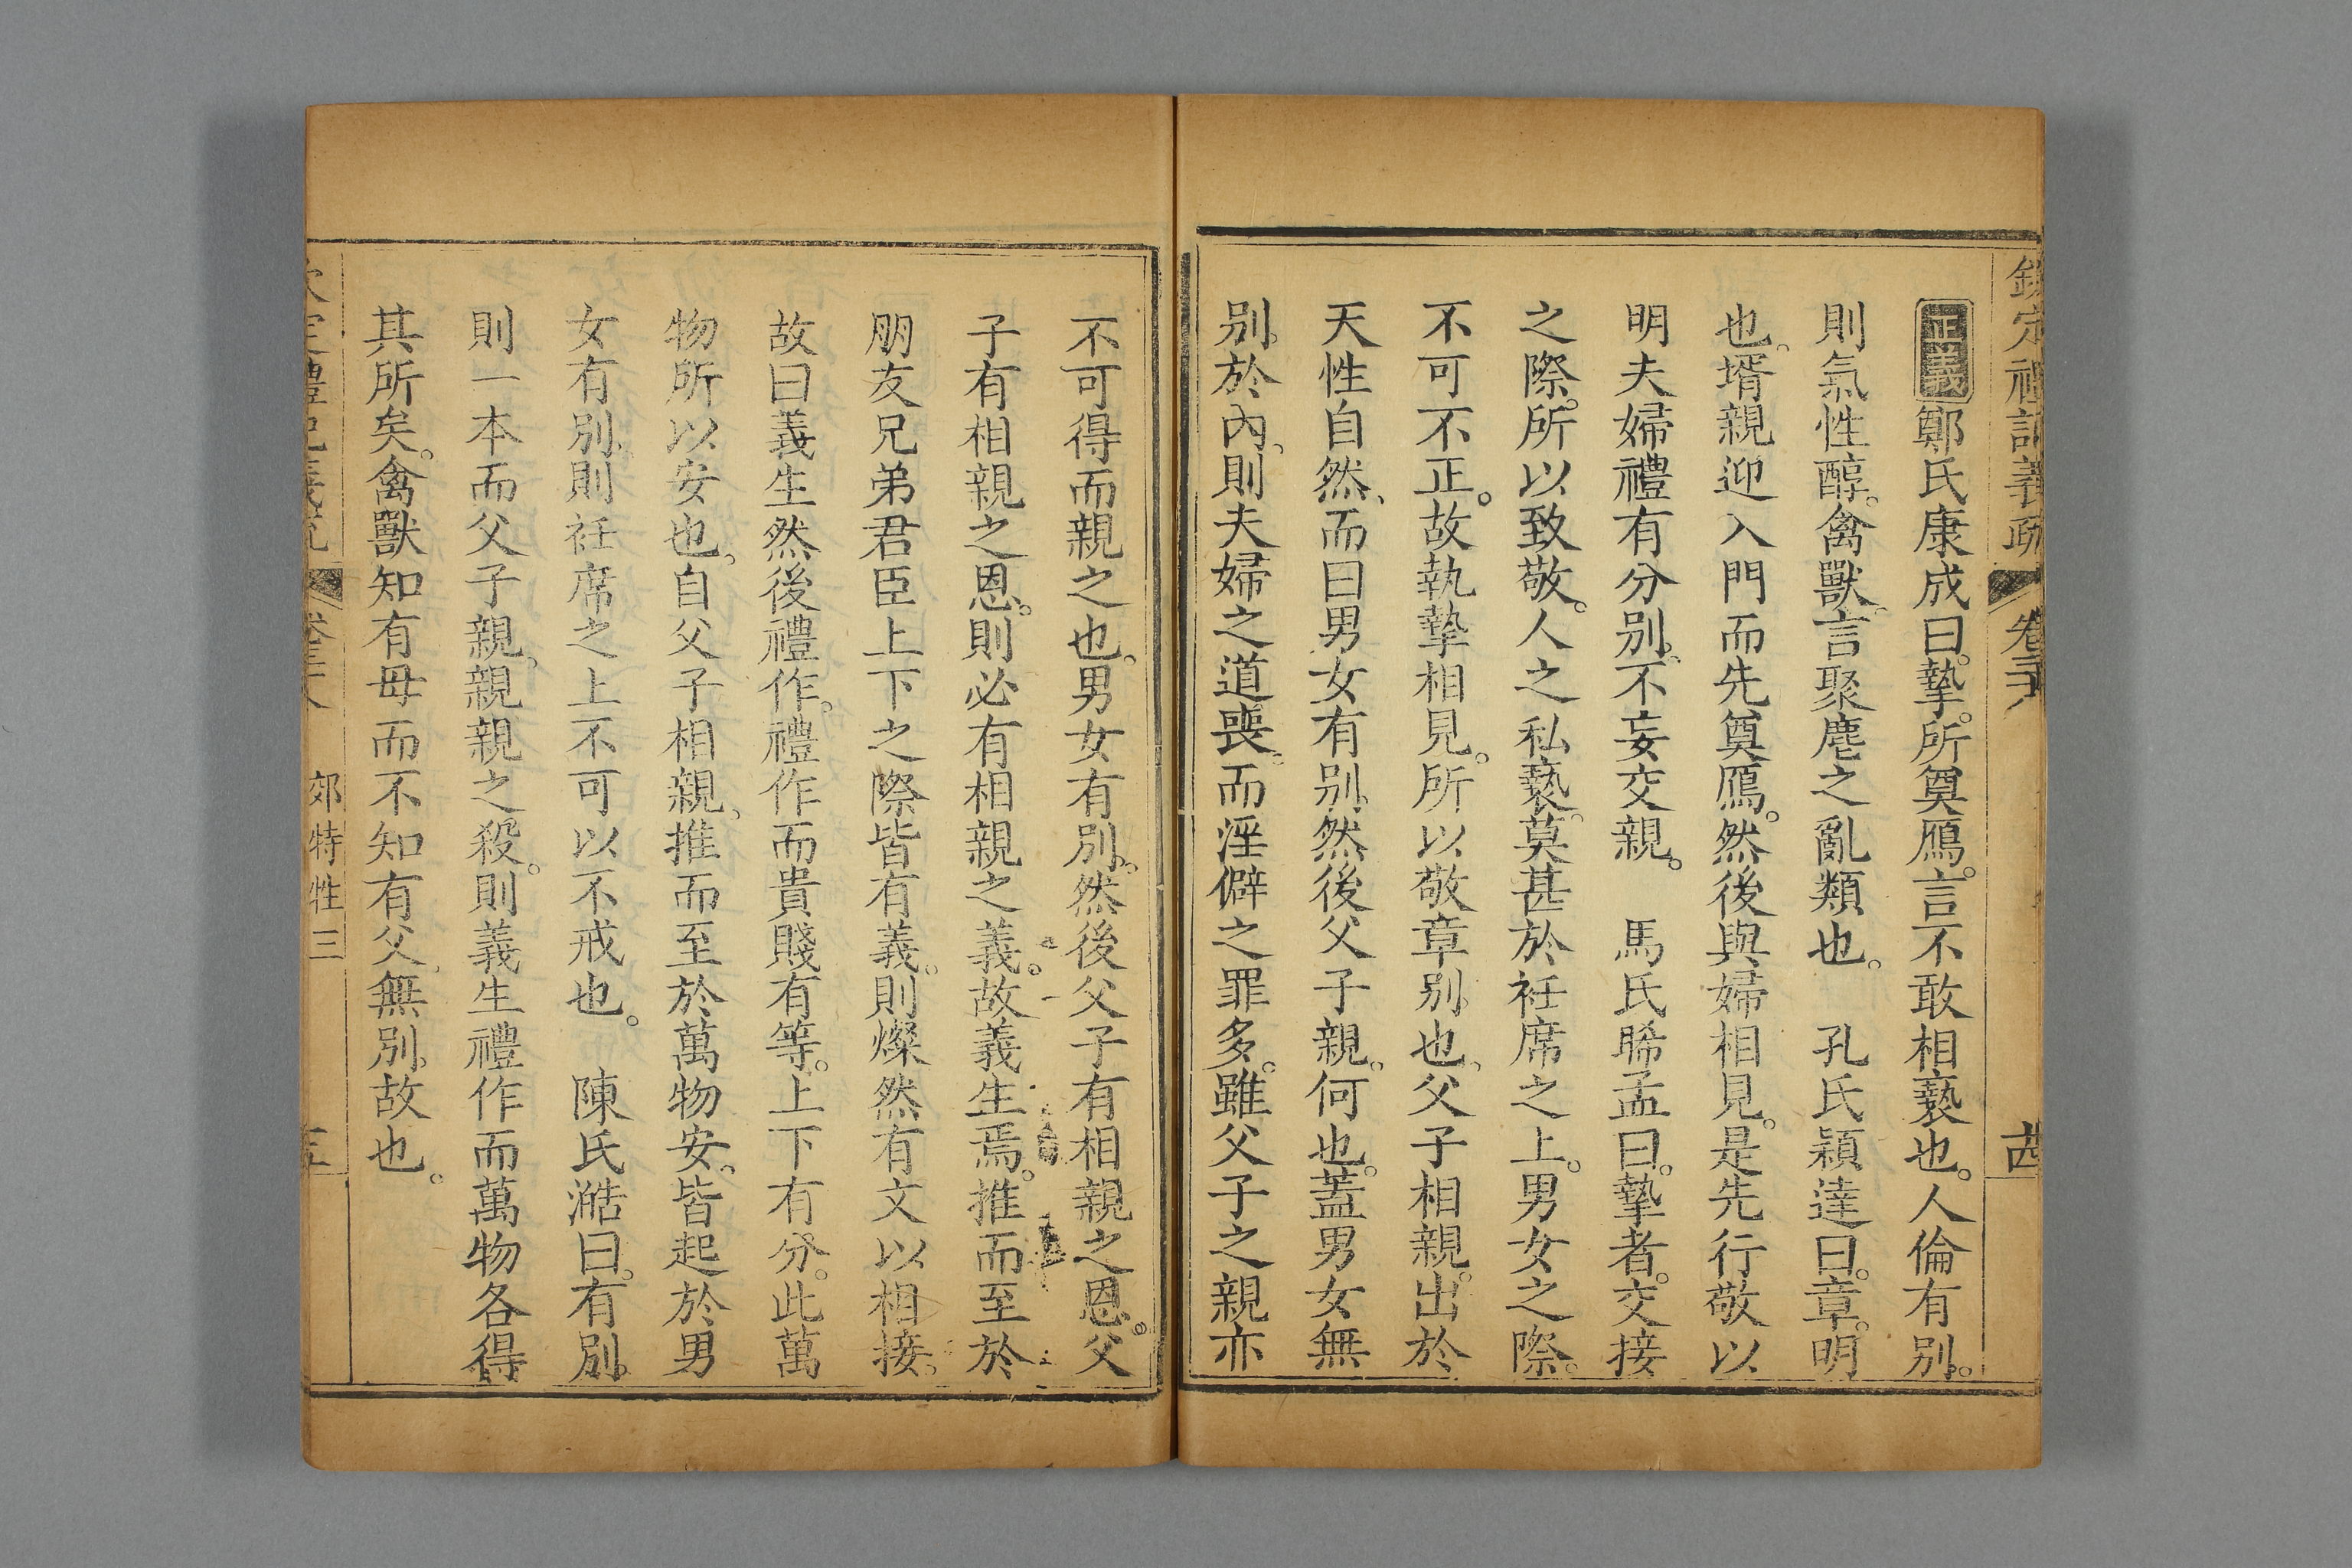 欽定禮記義疏 卷三十六 十四
正義鄭氏康成曰。摯。所奠鴈。言不敢相褻也。人倫有別。
則氣性醇。禽獸。言聚麀之亂類也。 孔氏穎達曰。章。明
也。壻親迎入門而先奠鴈。然後與婦相見。是先行敬以
明夫婦禮有分別。不妄交親。 馬氏晞孟曰。摯者。交接
之際。所以致敬。人之私褻。莫甚於衽席之上。男女之際。
不可不正。故執摯相見。所以敬章別也、父子相親。出於
天性自然、而曰男女有別、然後父子親。何也。蓋男女無
別。於內、則夫婦之道喪。而淫僻之罪多。雖父子之親亦
不可得而親之也。男女有別。然後父子有相親之恩。父
子有相親之恩。則必有相親之義。故義生焉。推而至於
朋友兄弟君臣上下之際皆有義。則燦然有文以相接。
故曰義生然後禮作。禮作而貴賤有等。上下有分。此萬
物所以安也、自父子相親、推而至於萬物安。皆起於男
女有別、則衽席之上不可以不戒也。 陳氏澔曰。有別。
則一本而父子親。親親之殺。則義生禮作而萬物各得
其所矣。禽獸知有母而不知有父、無別、故也。
欽定禮記義疏 卷三十六 郊特牲三